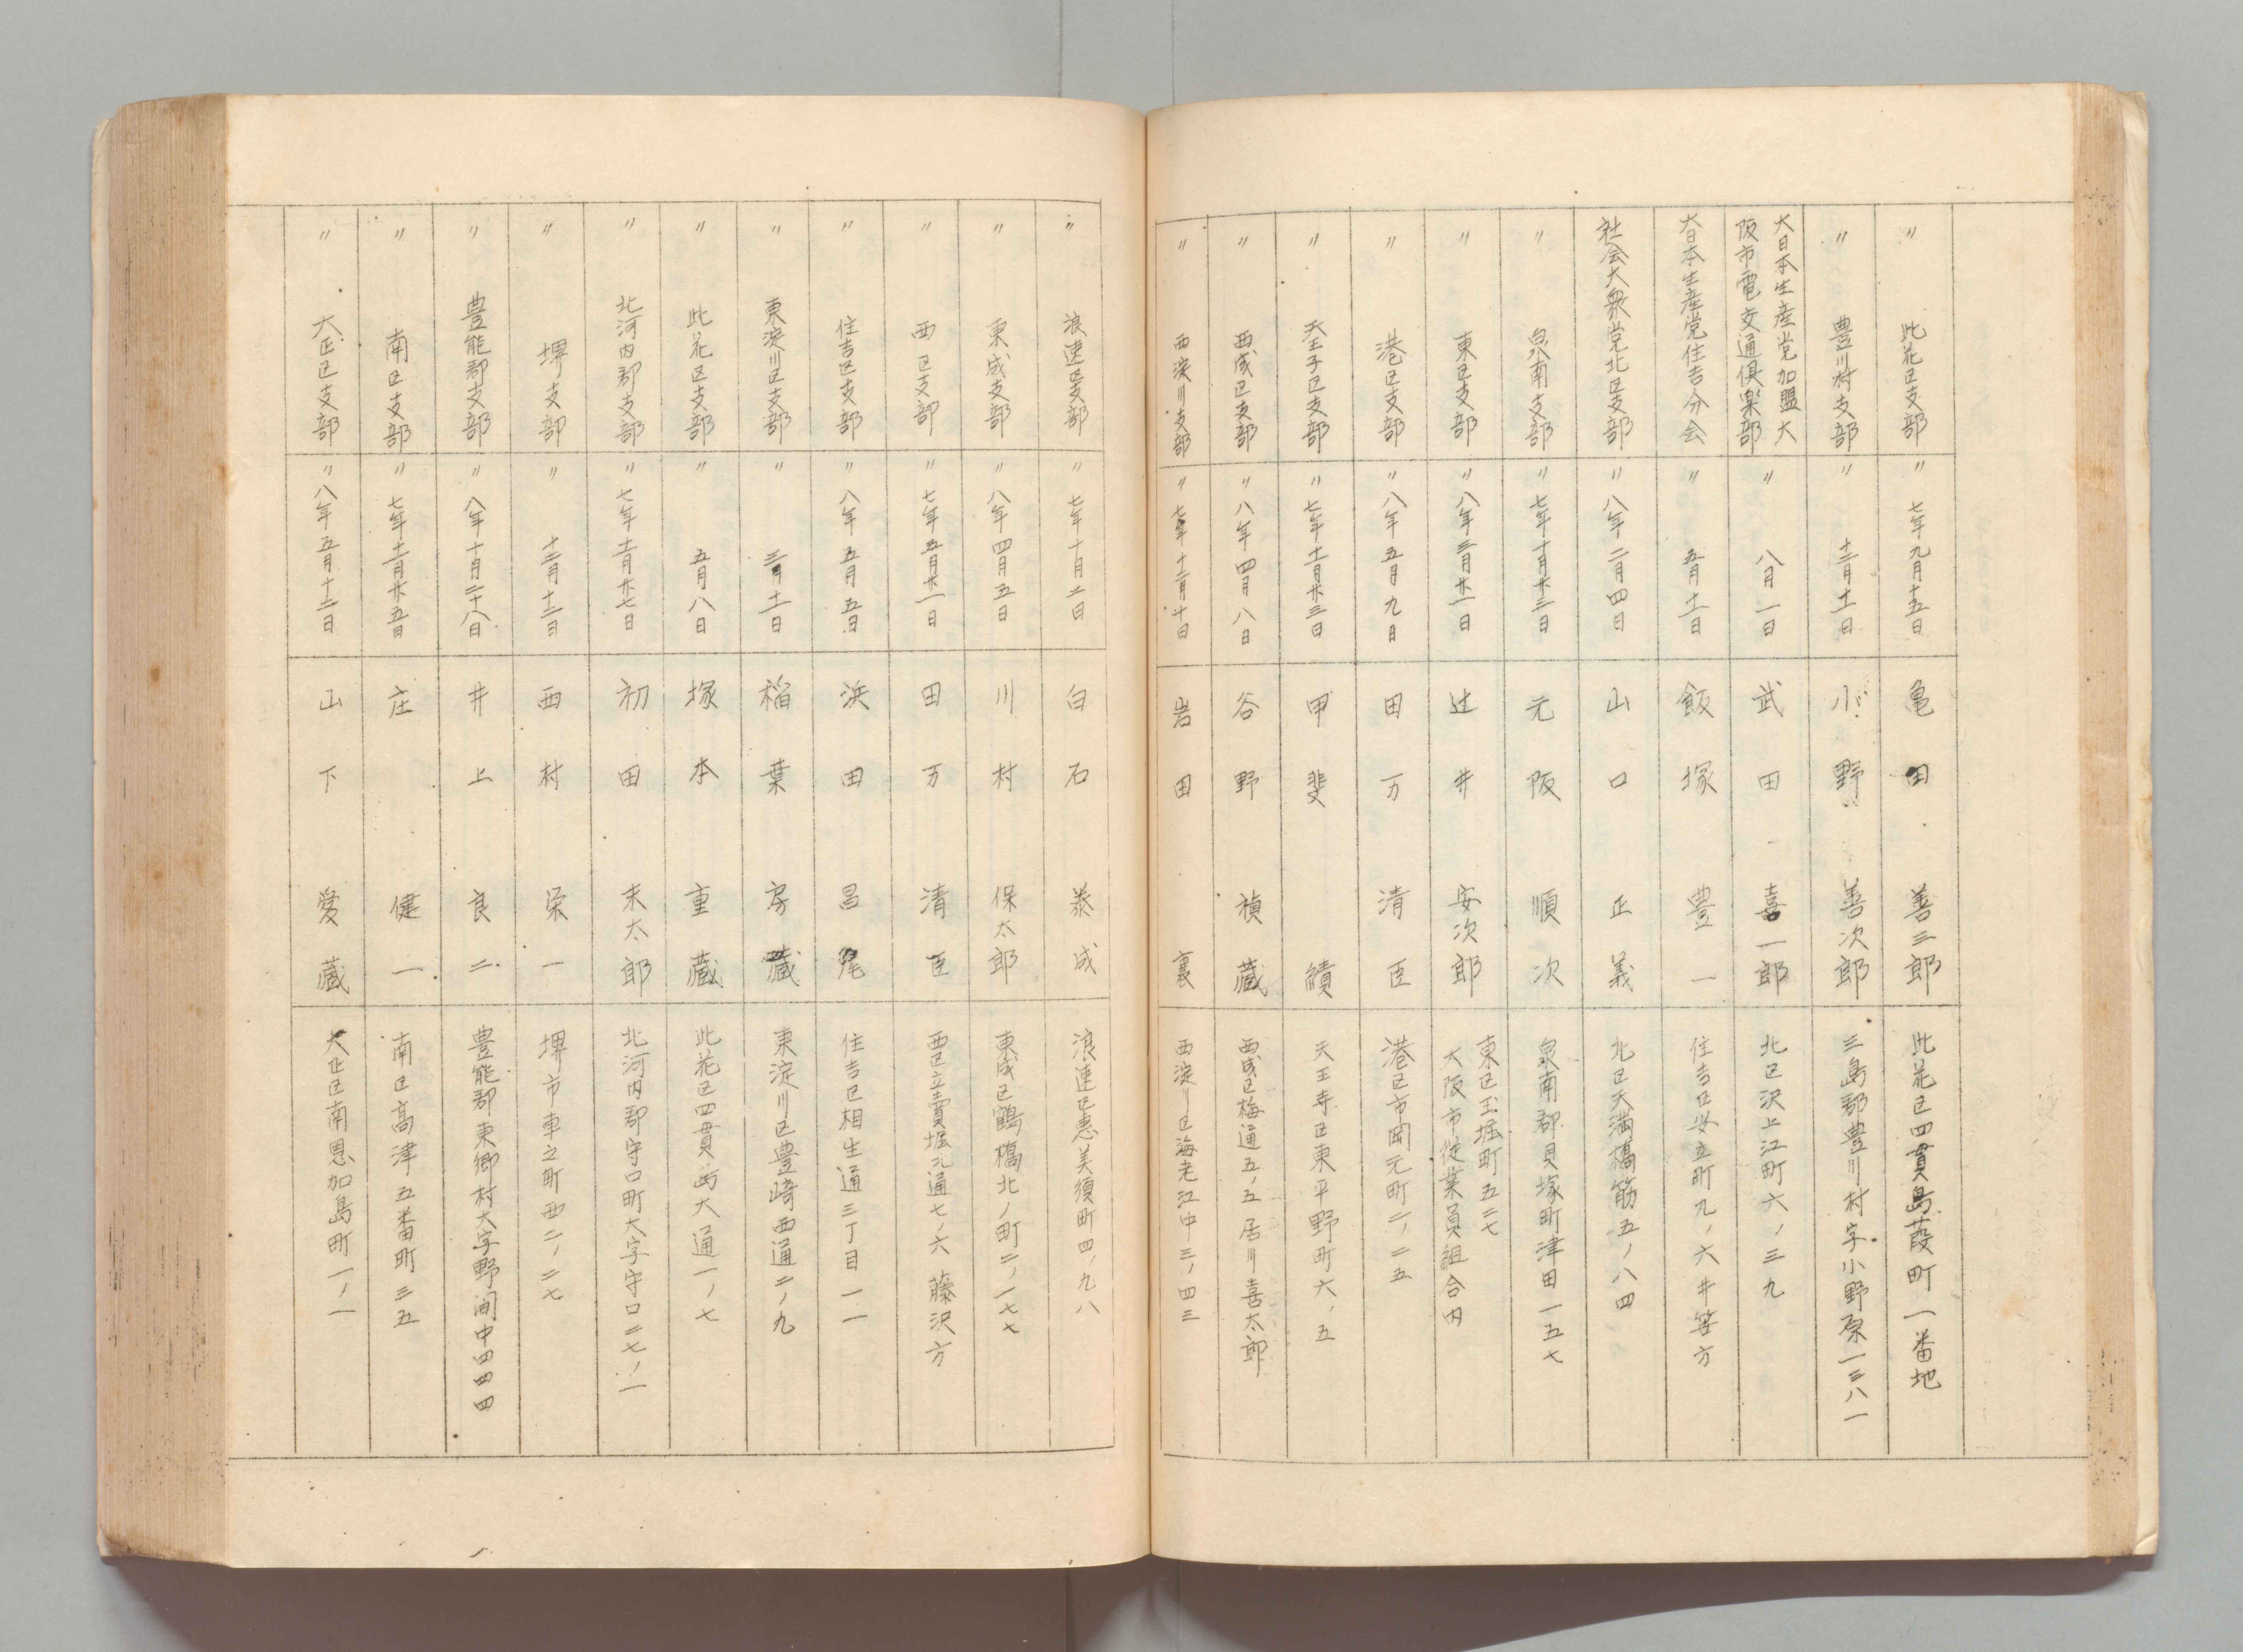 〃 此花区支部 〃 七年九月十五日 亀田善三郎 此花区四貫島葭町一番地
〃 豊川村支部 〃 十二月十一日 小野善次郎 三島郡豊川村字小野原一三八一
大日本生産党加盟大
阪市電交通倶楽部 〃 八月一日 武田喜一郎 北区沢上江町六ノ三九
大日本生産党住吉分会 〃 五月十一日 飯塚豊一 住吉区安立町九ノ六井 方
社会大衆党北区支部 〃 八年二月四日 山口正義 北区天満橋筋五ノ八四
〃 泉南支部 〃 七年十月廿三日 元阪順次 泉南郡貝塚町津田一五七
〃 東区支部 〃 八年三月廿一日 辻井安次郎 東区玉堀町五二七
大阪市従業員組合内
〃 港区支部 〃 八年五月九日 田万清臣 港区市岡元町二ノ二五
〃 天王子区支部 〃 七年十一月廿三日 甲斐績 天王寺区東平野町六ノ五
〃 西成区支部 〃 八年四月八日 谷野禎蔵 西成区梅通五ノ五居川喜太郎
〃 西淀川支部 〃 七年十二月十日 岩田裏 西淀川区海老江中三ノ四三
〃 浪速区支部 〃 七年十月二日 白石泰成 浪速区恵美須町四ノ九八
〃 東成支部 〃 八年四月五日 川村保太郎 東成区鶴橋北ノ町二ノ一七七
〃 西区支部 〃 七年五月廿一日 田万清臣 西区立売堀北通七ノ六 藤沢方
〃 住吉区支部 〃 八年五月五日 浜田昌尾 住吉区相生通三丁目一一
〃 東淀川区支部 〃 三月十一日 稲葉房蔵 東淀川区豊崎西通二ノ九
〃 此花区支部 〃 五月八日 塚本重蔵 此花区四貫島大通一ノ七
〃 北河内郡支部 〃 七年十一月廿七日 初田末太郎 北河内郡守口町大字守口二七ノ一
〃 堺支部 〃 十二月十二日 西村栄一 堺市車之町西二ノ二七
〃 豊能郡支部 〃 八年十月二十八日 井上良二 豊能郡東郷村大字野間中四四四
〃 南区支部 〃 七年十一月廿五日 庄健一 南区高津五番町三五
〃 大正区支部 〃 八年五月十二日 山下愛蔵 大正区南恩加島町一ノ一